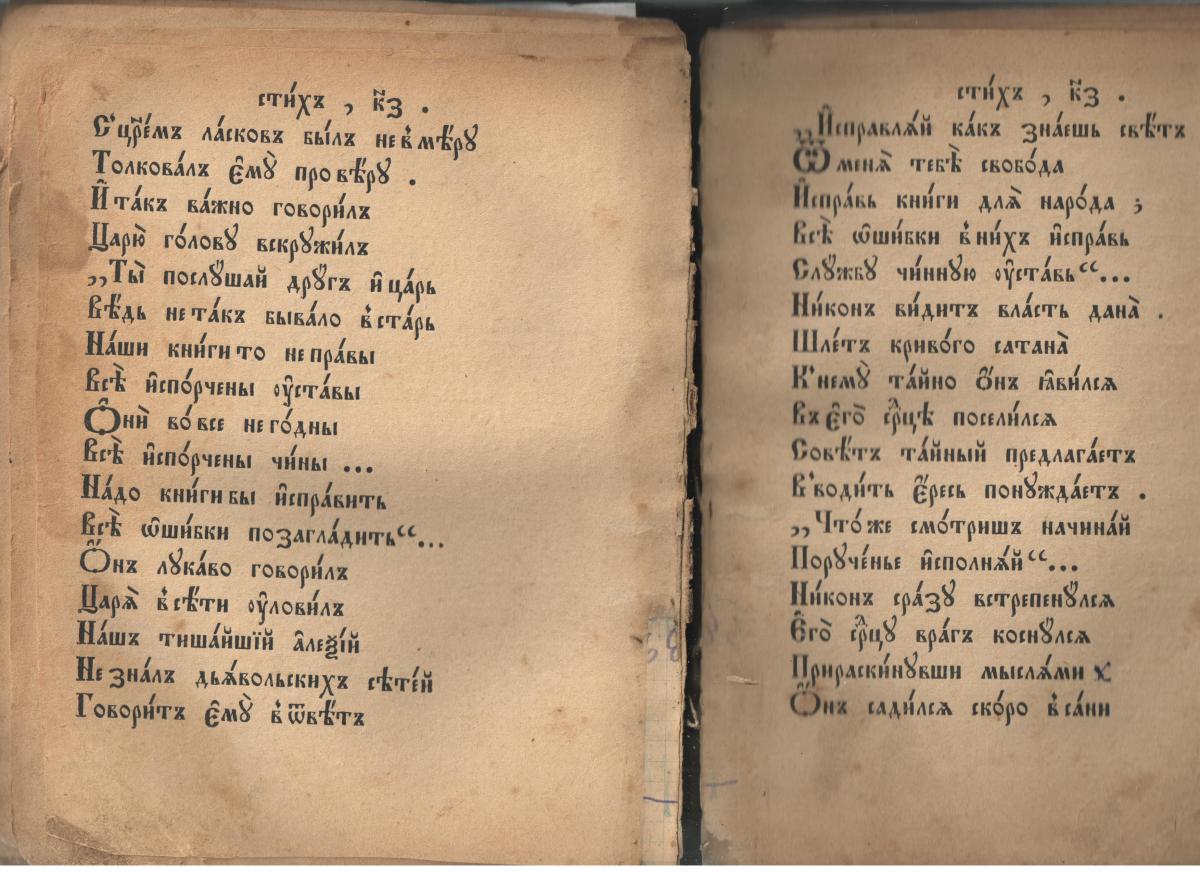 сти́хъ , к҃з .
С' цр҃е́мъ ла́сковъ бы́лъ не в' мѣ́рꙋ
Толкова́лъ є҆мꙋ̀ про вѣ́рꙋ .
И҆ та́къ ва́жно говори́лъ
Царю̀ го́ловꙋ вскрꙋжи́лъ
„Ты̀ послꙋ́шай дрꙋ́гъ и҆ ца́рь
Вѣ́дь не та́къ быва́ло в' ста́рь
На́ши кни́ги то не пра́вы
Всѣ̀ и҆спо́рчены оу҆ста́вы
Ѻ҆нѝ во́ все не го́дны
Всѣ̀ и҆спо́рчены чи́ны ...
На́до кни́ги бы и҆спра́вить
Всѣ̀ ѡ҆ши́бки позагла́дить“...
Ѻ҆́нъ лꙋка́во говори́лъ
Царѧ̀ в' сѣ́ти оу҆лови́лъ
На́шъ тиша́йшїй а҆леѯі́й
Не зна́лъ дьѧ́вольскихъ сѣте́й
Говори́тъ є҆мꙋ̀ в' ѿвѣ́тъ
сти́хъ , к҃з .
„И҆справлѧ́й ка́къ зна́ешь свѣ́тъ
Ѿ менѧ̀ тебѣ̀ свобо́да
И҆спра́вь кни́ги длѧ̀ наро́да ;
Всѣ̀ ѡ҆ши́бки в' ни́хъ и҆спра́вь
Слꙋ́жбꙋ чи́нную оу҆ста́вь“...
Ни́конъ ви́дит вла́сть дана̀ .
Шле́тъ криво́го сатана̀
К' немꙋ̀ та́йно ѻ҆́нъ ꙗ҆ви́лсѧ
Въ є҆го̀ срⷣцѣ посели́лсѧ
Совѣ́тъ та́йный предлага́етъ
В' води́ть є҆́ресь понꙋжда́етъ .
„Что́ же смо́тришъ начина́й
Порꙋче́нье и҆сполнѧ́й“...
Ни́конъ сра́зꙋ встрепенꙋ́лсѧ
Є҆го̀ срⷣцꙋ вра́гъ коснꙋ́лсѧ
Прираски́нꙋвши мыслѧ́ми х
Ѻ҆́нъ сади́лсѧ ско́ро в' са́ни